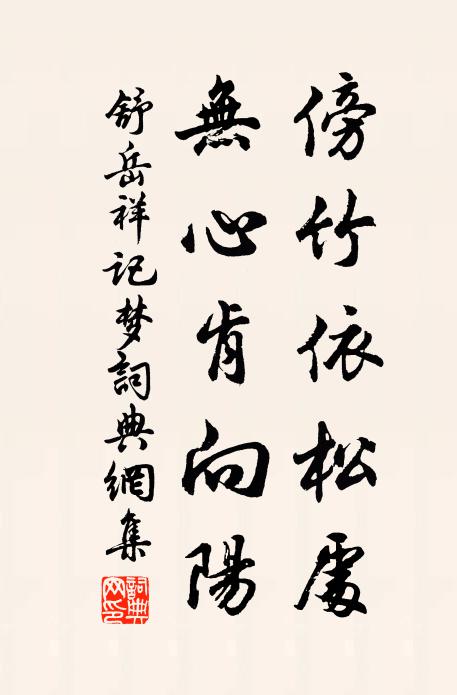 傍竹依松處
無心肯向陽
舒岳祥記梦詞典網集
詞典網印